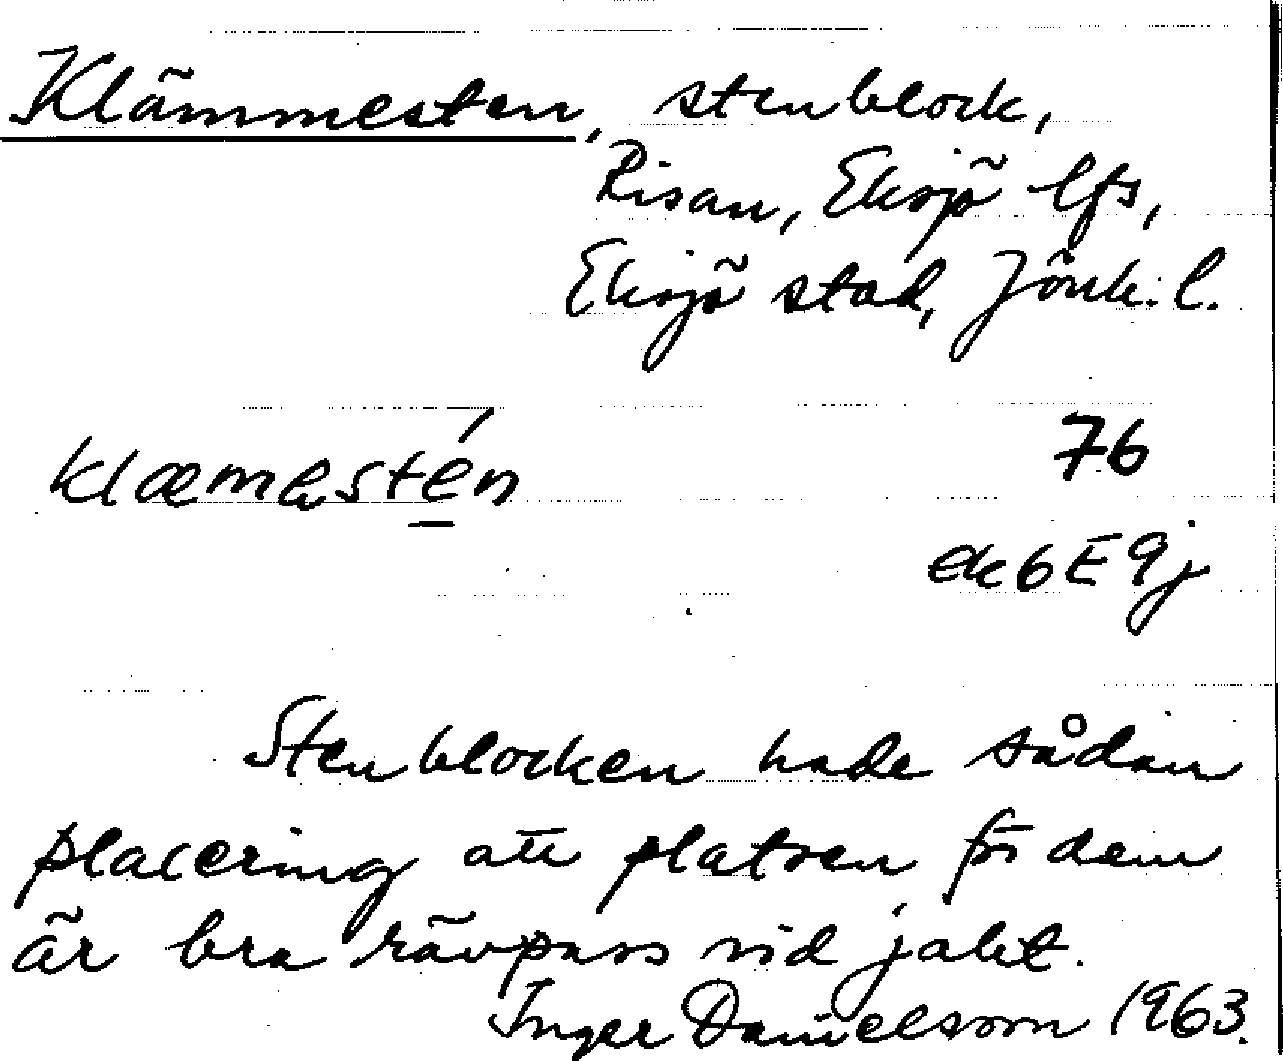 Klämmesten, stenblock,
Risan, Eksjö lfs,
Eksjö stad, Jönk. l.
klæmestén
76
ek 6 E 9 j
Stenblocken hade sådan
placering att platsen för dem
är bra rävpass vid jakt.
Inger Danielsson 1963.